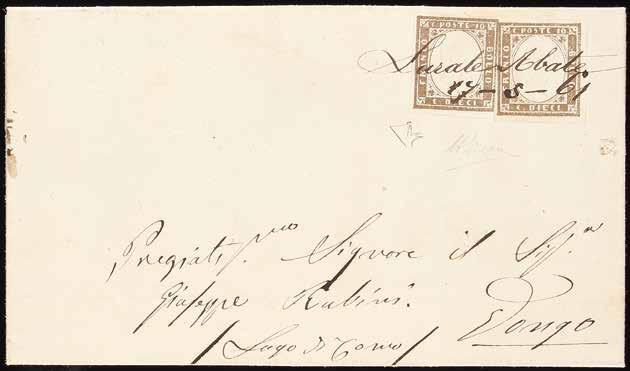 C. POSTE 10 C. POSTE 10
Lurate Abate
17-5-61
C. DIECI C. DIECI
Pregiatis.mo Signore il Sig.r
Giuseppe Rubini.
Dongo
/Lago di Como/